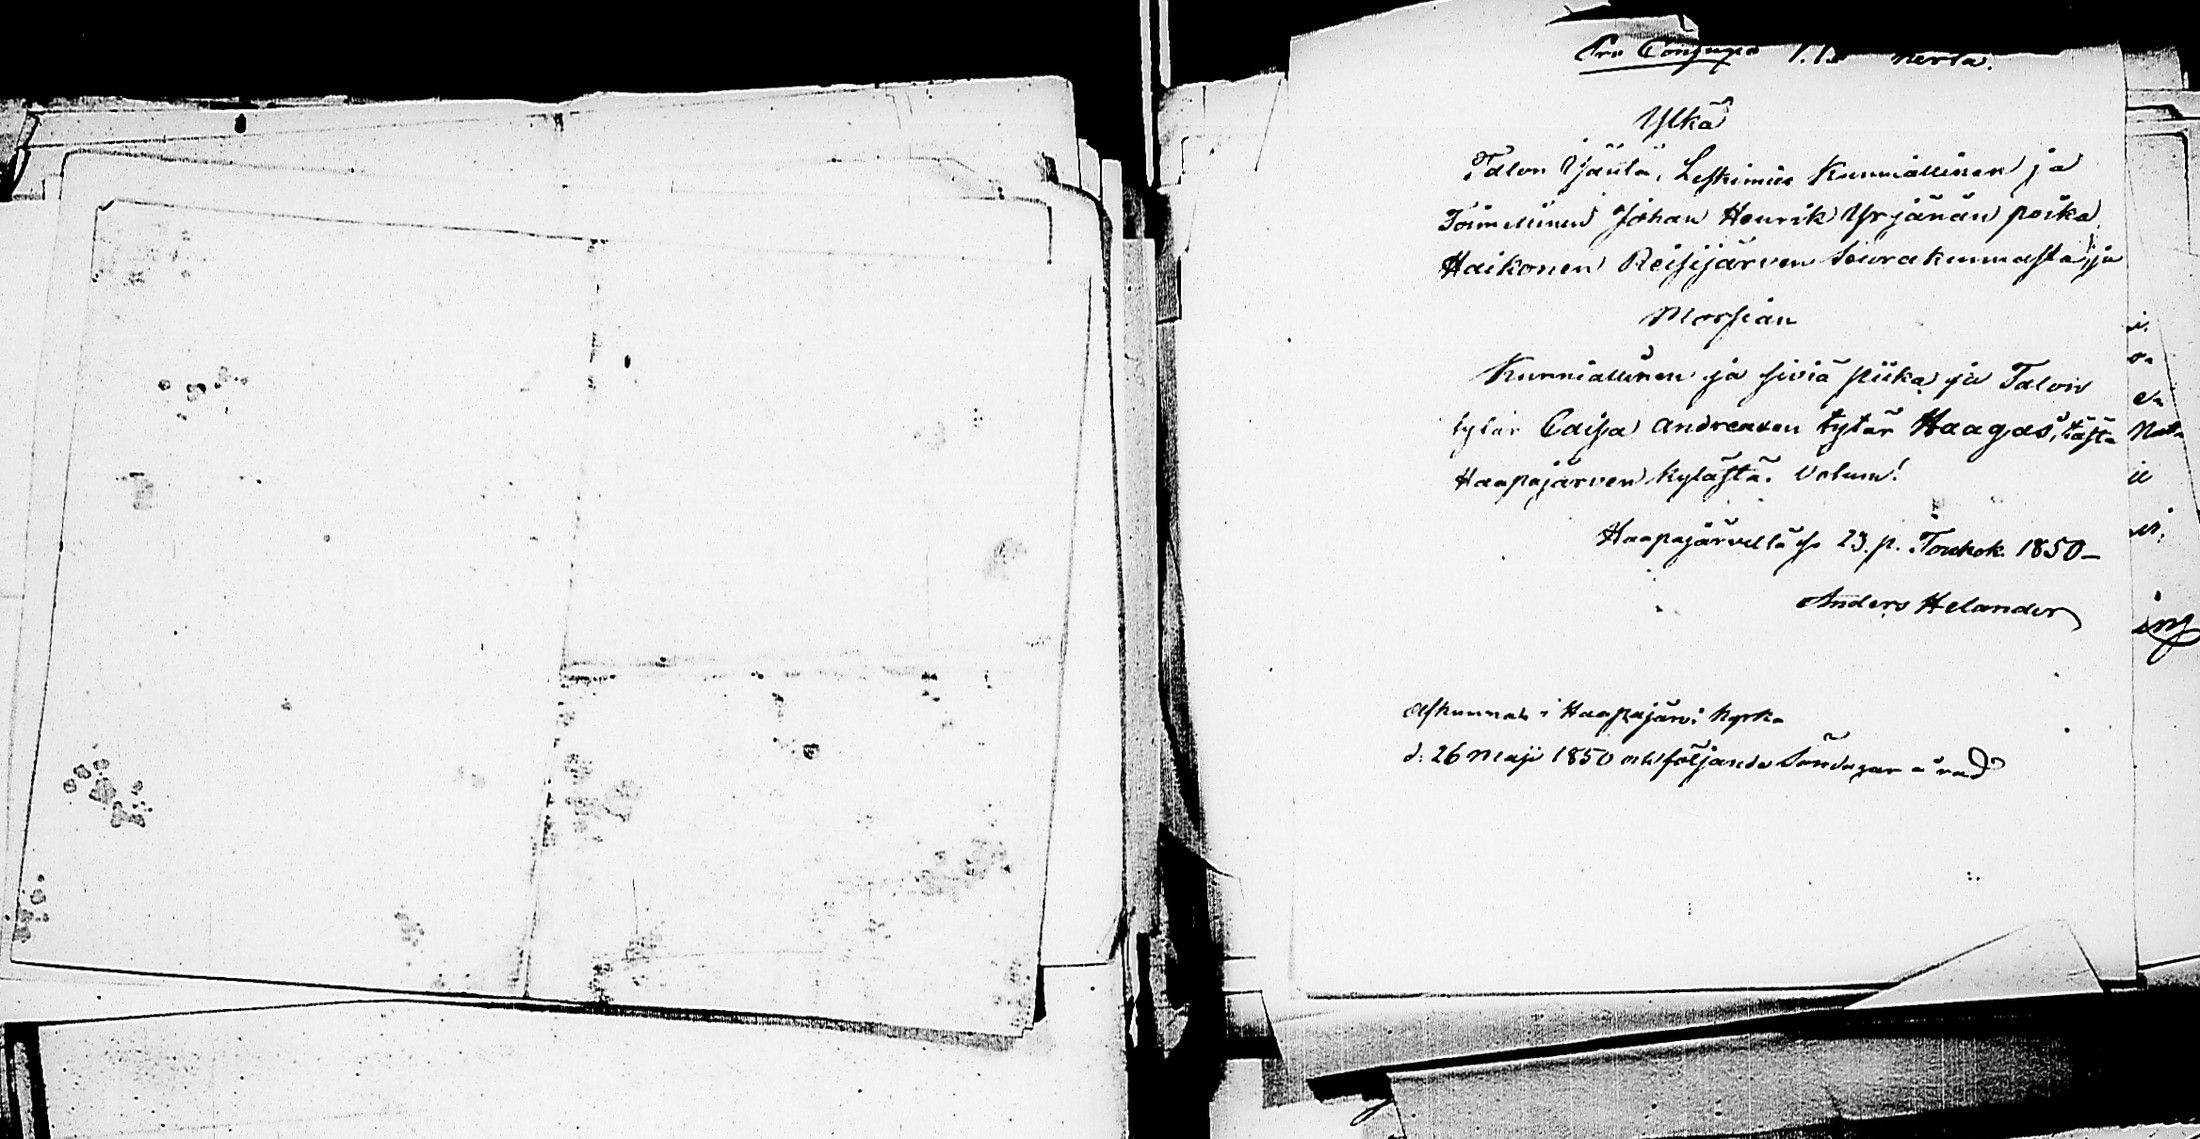 Pro Conjugio 1. kerta.
Ylkä
Talon Isäntä, Leskimies Kunniallinen ja
Toimellinen Johan Henrik Yrjänän poika
Haikonen Reisijärven Seurakunnasta, ja
Morsian
Kunniallinen ja siviä piika ja Talon
tytär Caisa Andreaxen tytär Haagas, tästä
Haapajärven kylästä. Votum!
Haapajärvellä 23. p. Toukok. 1850
Anders Helander
Afkunnad i Haapajärvi kyrka
d. 26 Maji 1850 och följande Söndagar å rad